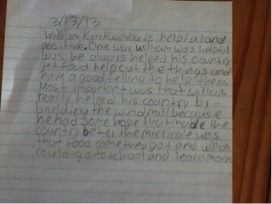 3/13/13
William Kamkwamba is helpful and
positive. One way William was helpful
was he always helped his country
get food help cut the things and
have a good felling to help them.
Most important was that William
really helped his country by -
building the windmill because
he had some hope that made the
country better the mirricale was
that food came they got and wich
could go to school and learn more